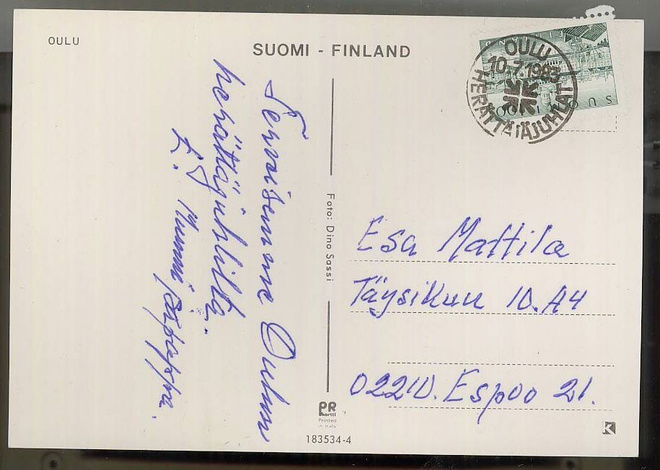 OULU
SUOMI - FINLAND
OULU
10.7.1983
HERÄTTÄJÄJUHLAT
SUOMI
Terveisemme Oulun
herättäjäjuhlilta.
t. Mummi ja pappa.
Foto: Dino Sassi
Esa Mattila
Täysikuu 10.A4
02210. Espoo 21.
PR
Printed
in Italy
183534-4
K